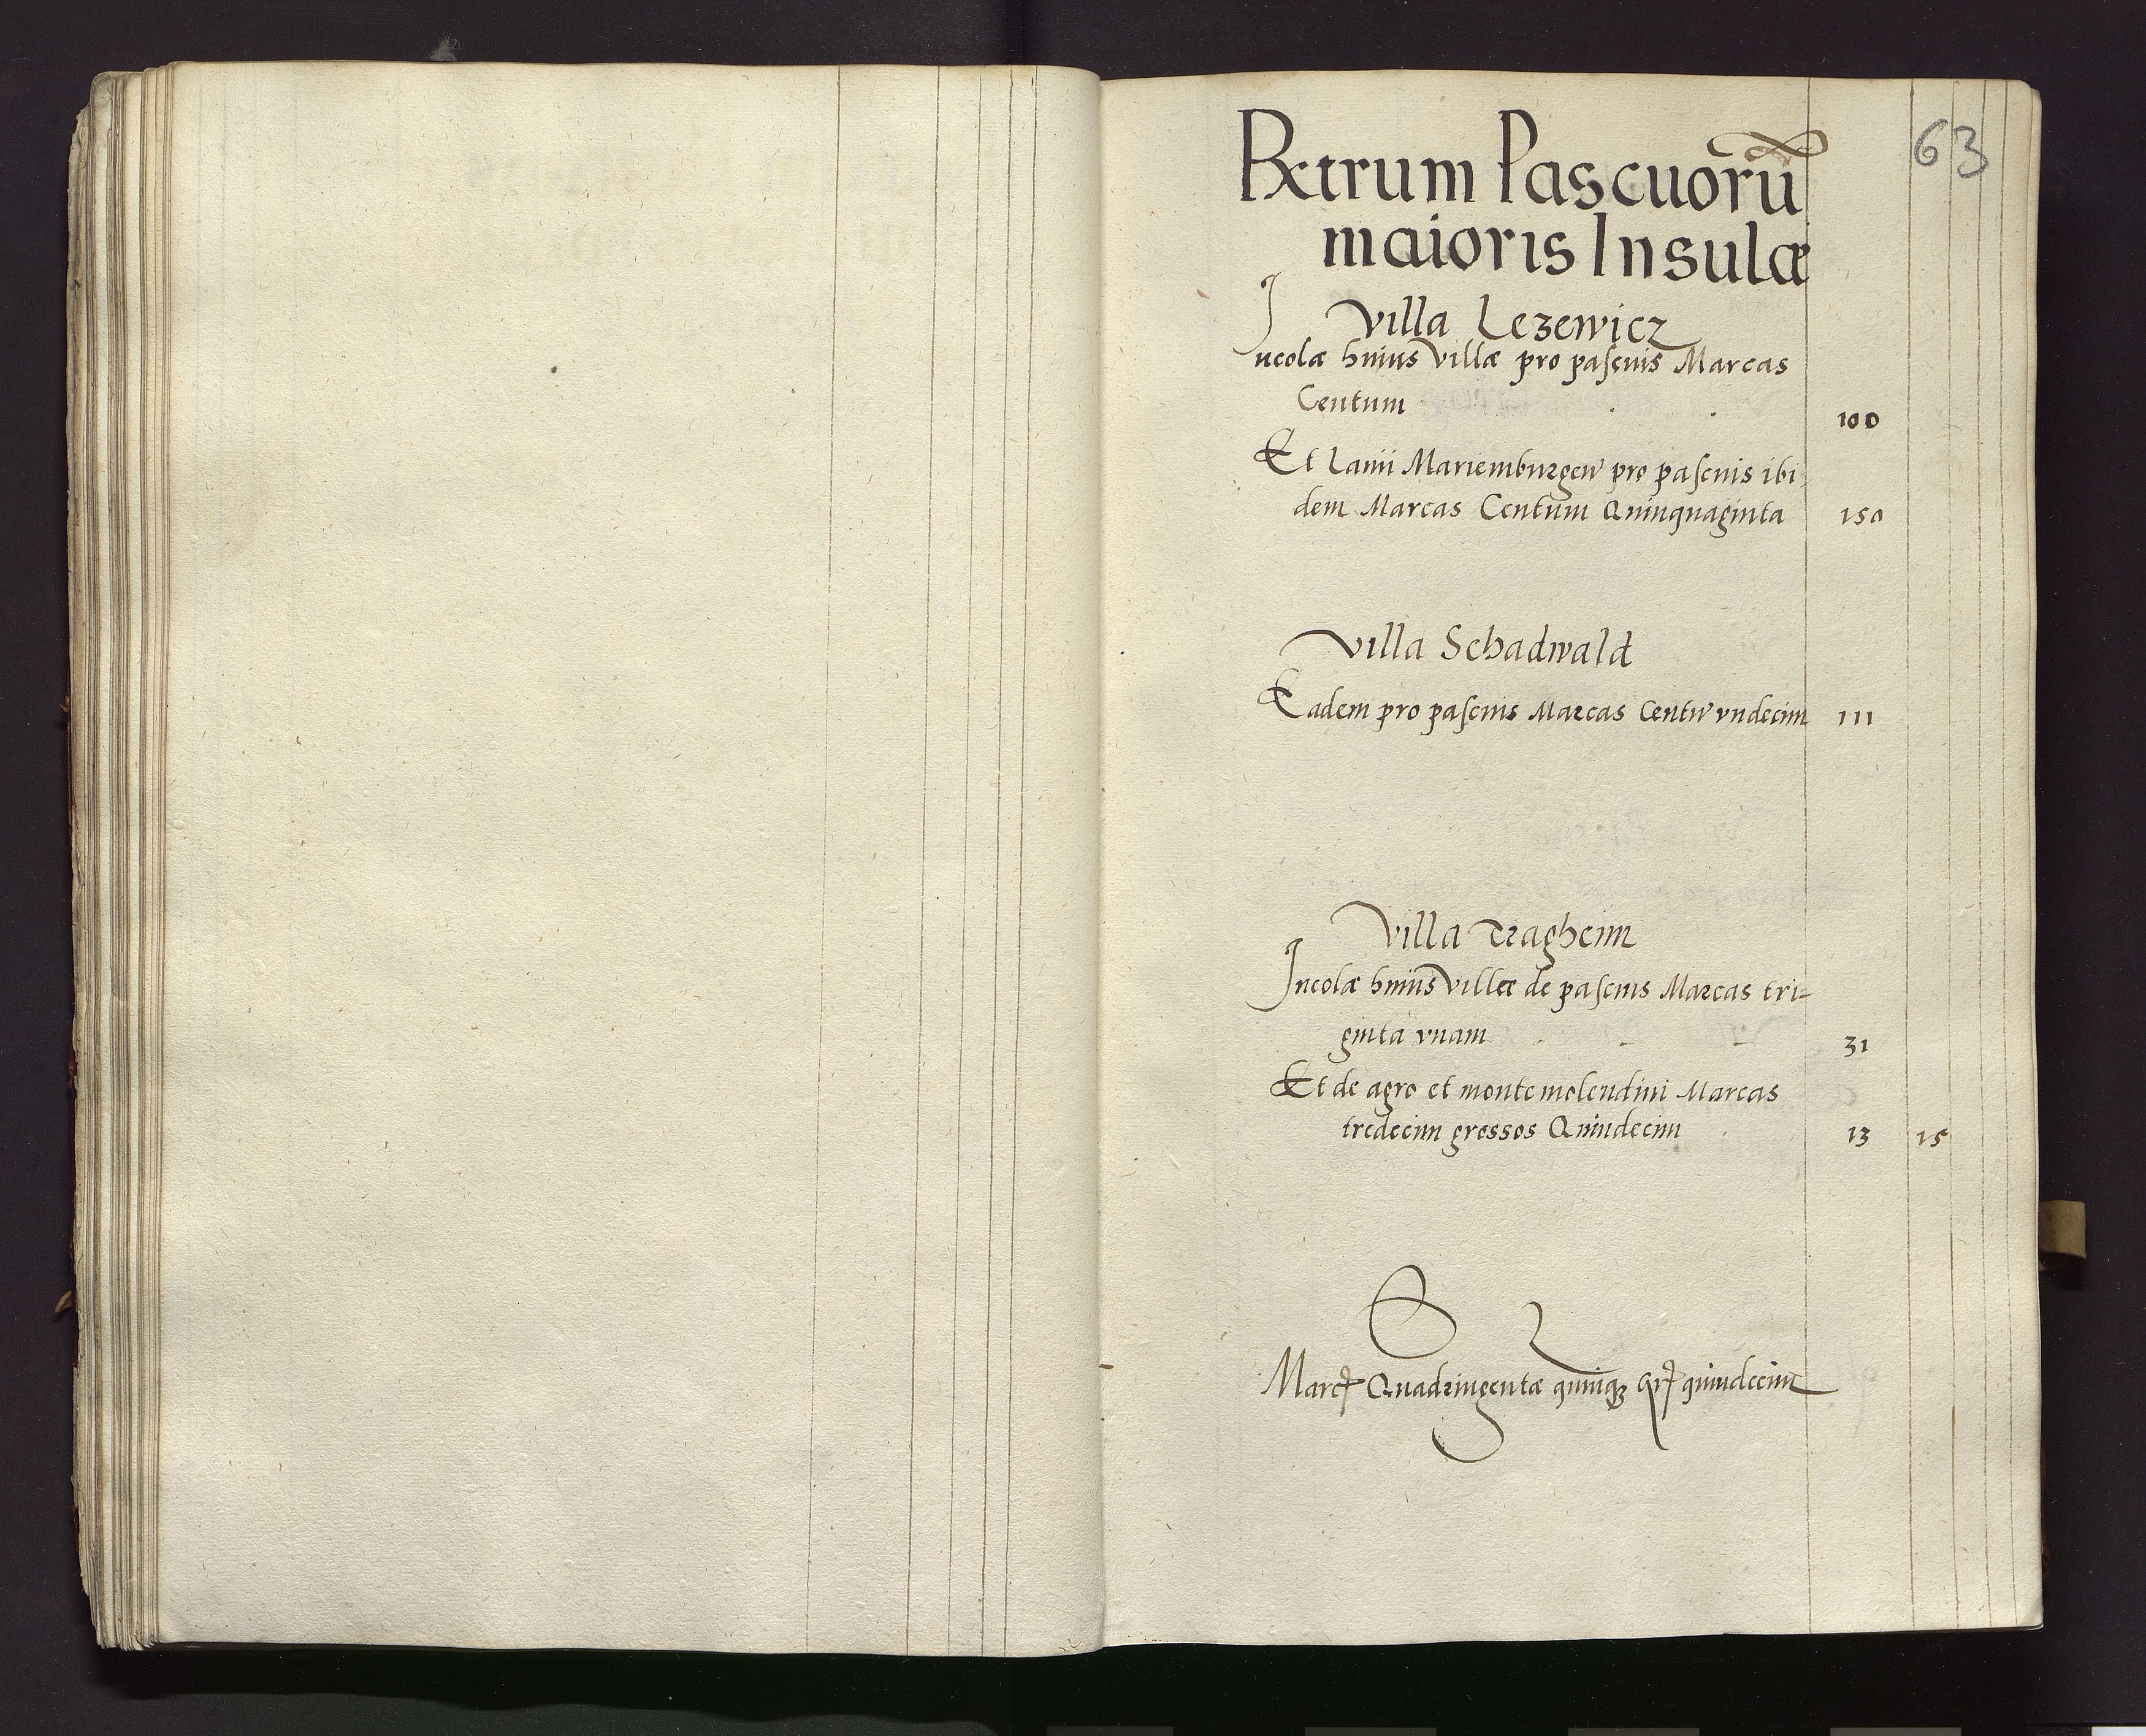 63
Rētrum Pascuorū
maioris Insulæ
Villa Lezewicz
Incolæ huius Villæ pro pascuis Marcas
Centum . . 100
Et Lanii Mariemburgen̄ pro pascuis ibi
dem Marcas Centum Quinquaginta 150
Villa Schadwald
Eadem pro pascuis Marcas Centū vndecim 111
Villa Tragheim
Incolæ huius Villæ de pascuis Marcas tri=
ginta vnam - - - 31
Et de agro et monte molendini Marcas
tredecim grossos Quindecim 13 15
Marcȩ Quadringentæ quinqȝ gr̄ quindecim